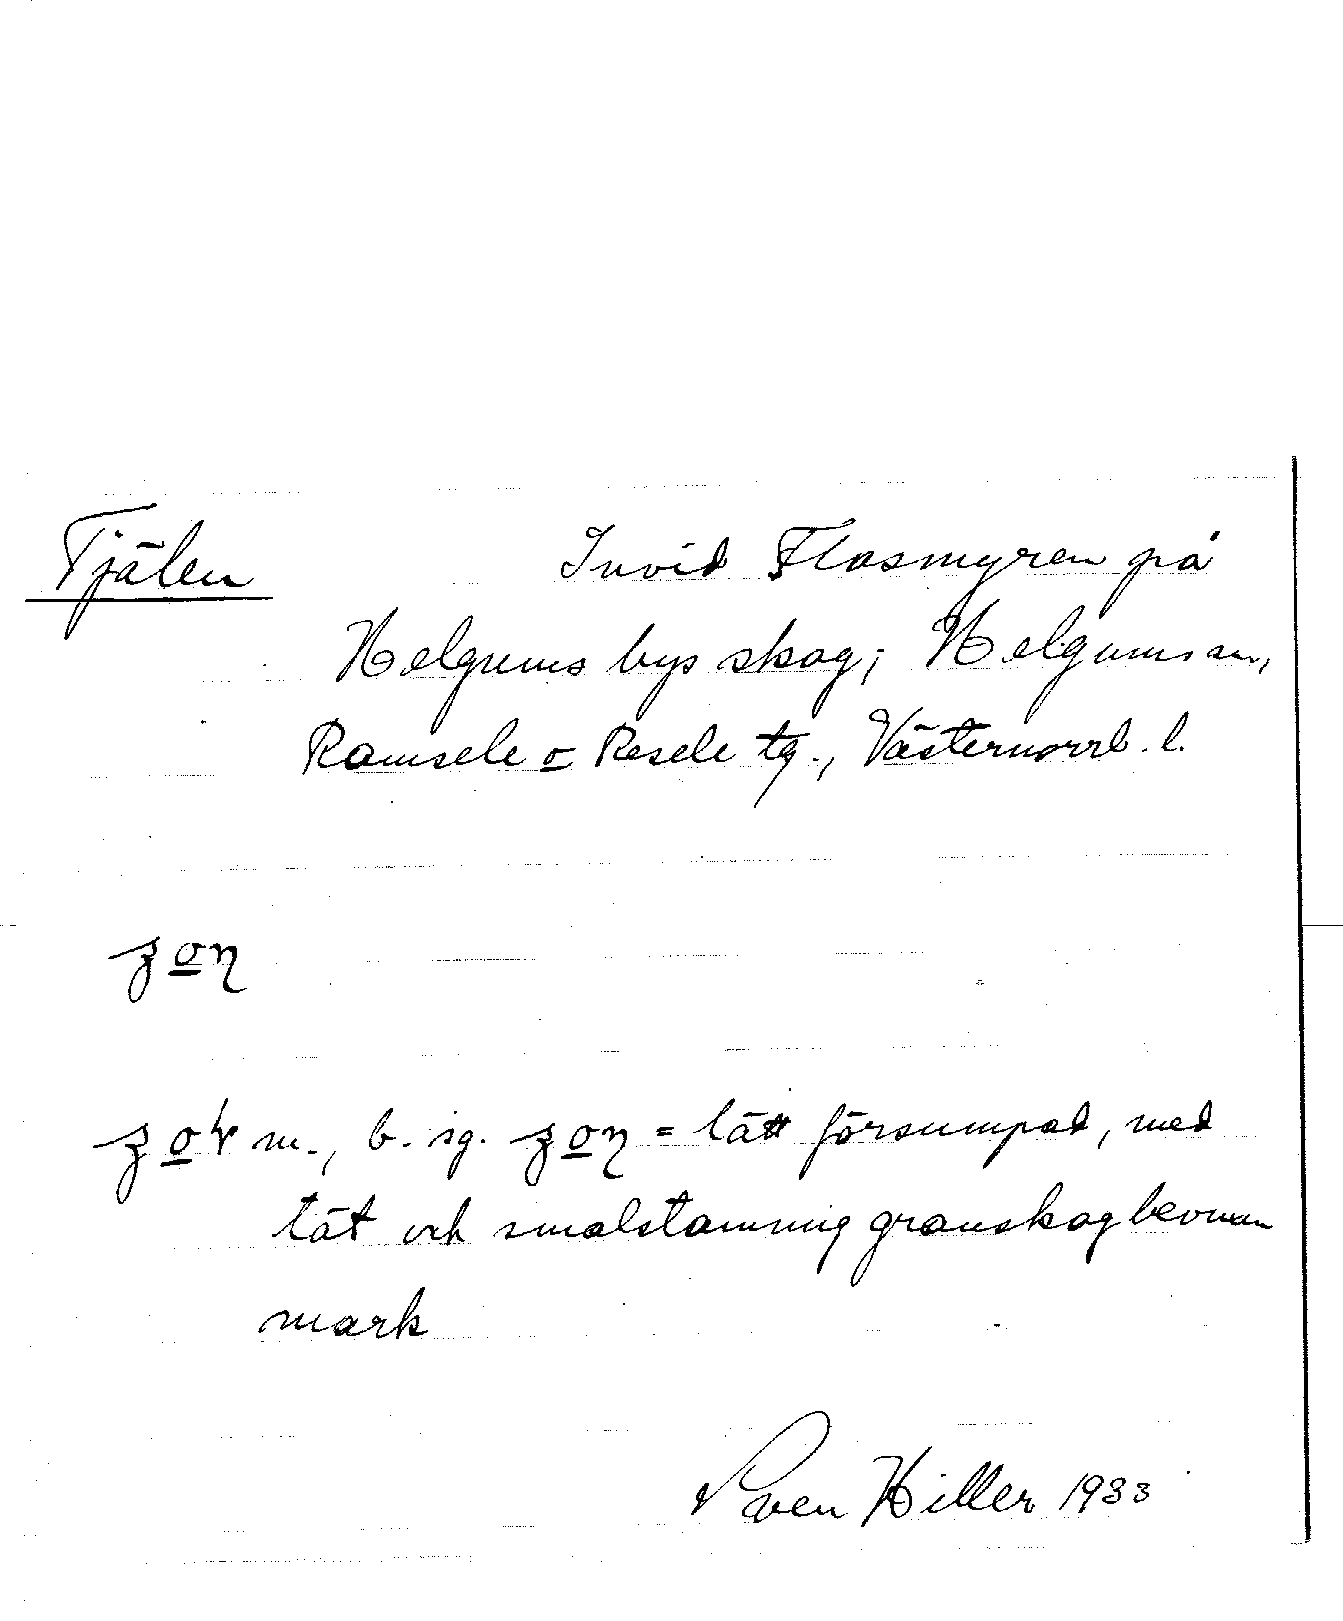 Tjälen Invid Flasmyren på
Helgums bys skog; Helgums sn,
Ramsele o Resele tg., Västernorrl. l.
m., b. sg. = lätt försumpad, med
tät och smalstammig granskog bevuxen
mark
Sven Hiller 1933